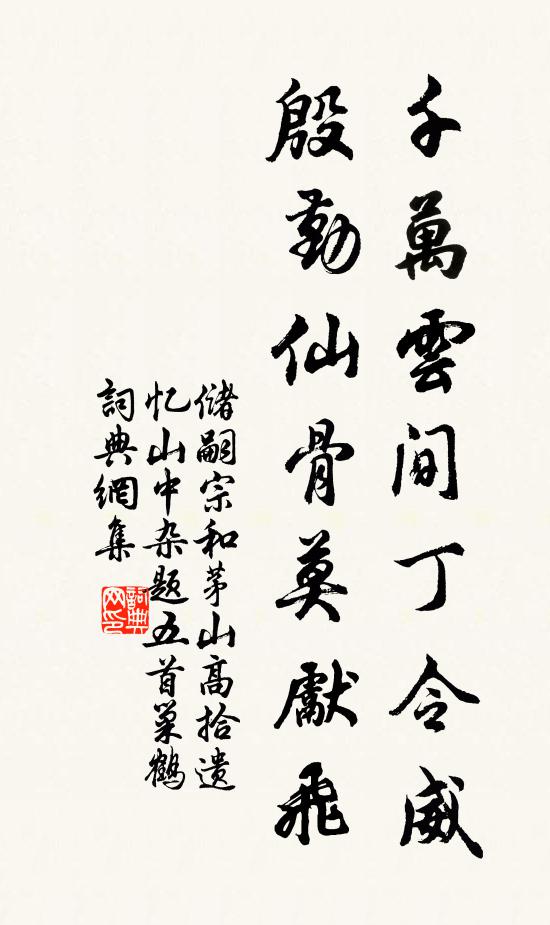 千萬雲間丁令威
殷勤仙骨莫獻飛
儲嗣宗和茅山高拾遺
忆山中杂题五首巢鶴
詞典網集
詞典
网印